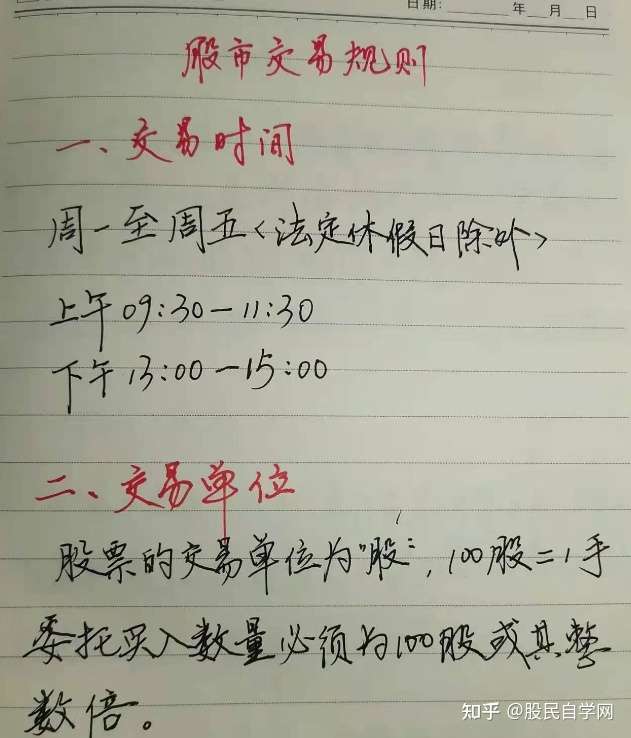 日期: 年 月 日
股市交易规则
一、交易时间
周一至周五<法定休假日除外>
上午09:30—11:30
下午13:00—15:00
二、交易单位
股票的交易单位为"股",100股=1手
委托买入数量必须为100股或其整
数倍。
知乎 @股民自学网